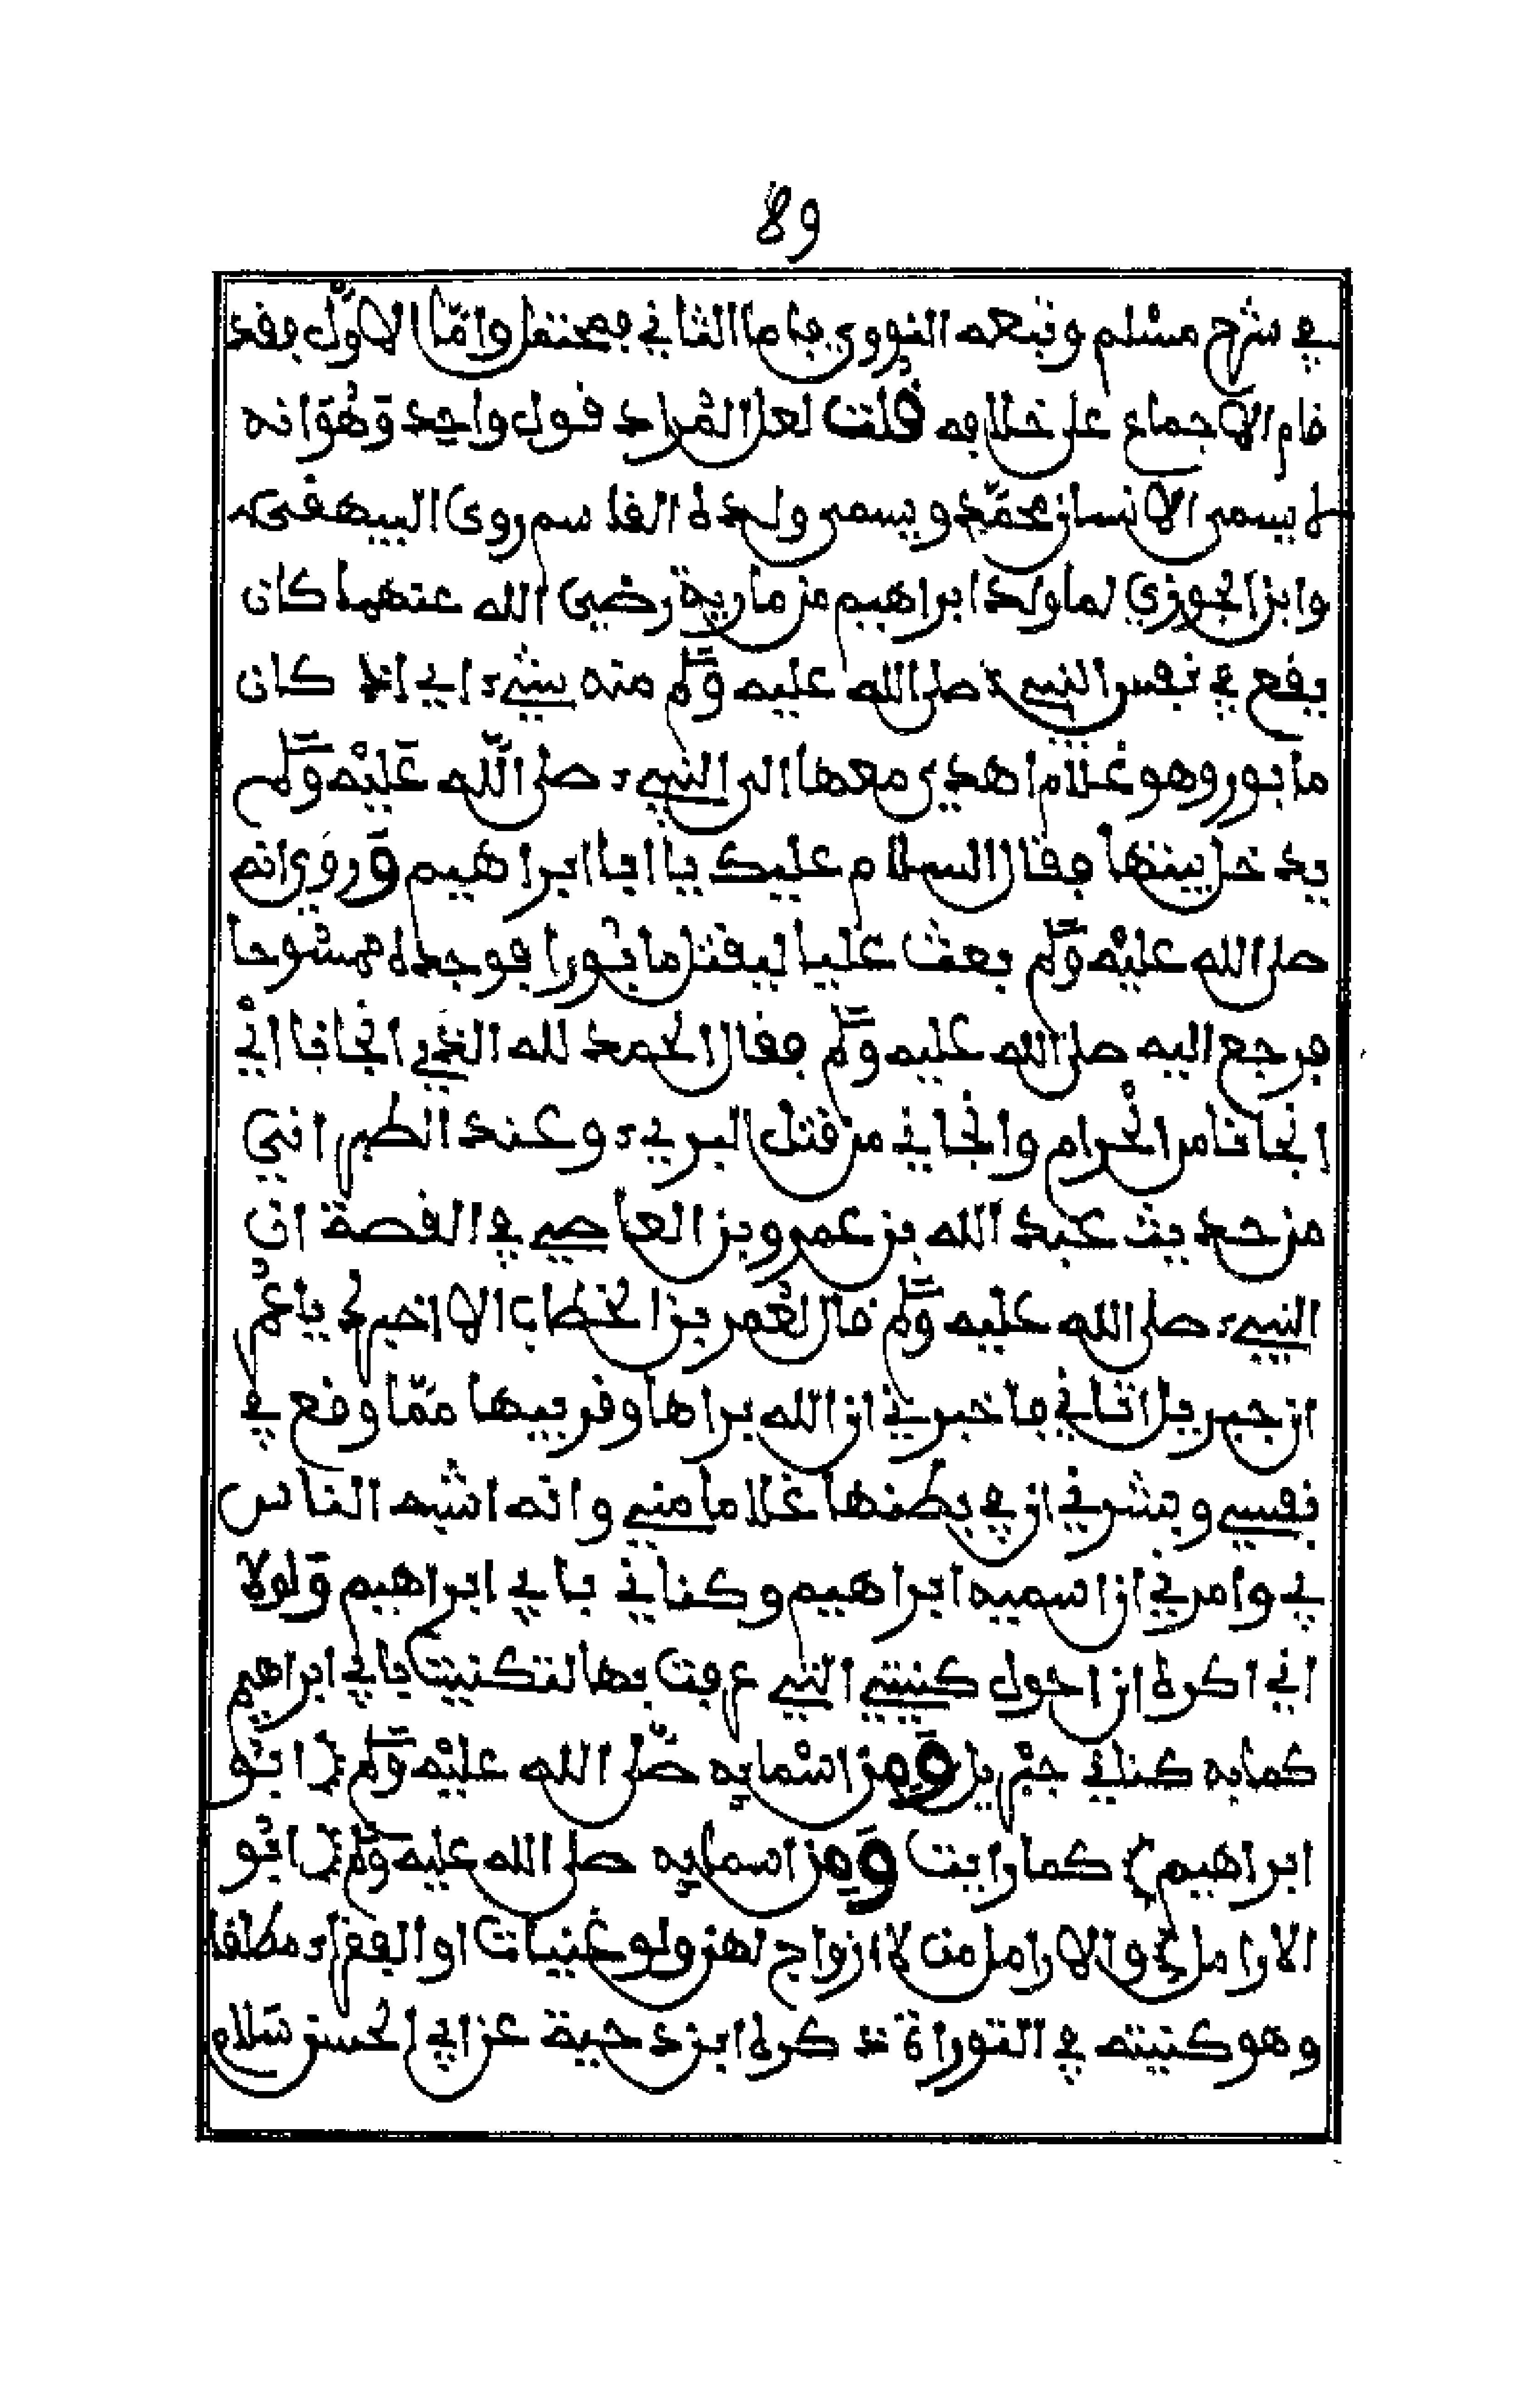 89
في شرح مسلم وتبعه النووي فاما الثاني فمحتمل وامّا الاوّل فقد
قام الاجماع على خلافه قلت لعل المُراد قول واحِد وَهُوَ انه
لا يسمى الانسان محمّد ويسمى ولده القاسم روى البيهقى
وابن الجوزي لما ولد ابراهيم من مارية رضي الله عنهما كان
يقع في نفس النبيء صلى الله عليه وسلم منه شيء اي اذ كان
مابور وهو غلام اهدي معها الى النبيء صلى اللّه عَليْه وسلم
يدخل بيتها فقال السلام عليك يا ابا ابراهيم وَروي انه
صلى الله عليْه وسلم بعث عليا ليقتل مابُورا فوجده ممسُوحا
فرجع اليه صلى الله عليه وسلم فقال الحمد لله الذي انجانا اي
انجانا من الحْرام وانجاني من قتل البريء وعند الطبراني
من حديث عبد الله بن عمرو بن العاصي في القصة ان
النبيء صلى الله عليه وسلم قال لعُمر بن الخطاب الا اخبرك يا عُمر
ان جبريل اتاني فاخبرني ان الله براها وقريبها ممّا وقع في
نفسي وبشرني ان في بطنها غلاما مني وانه اشبه الناس
بي وامرني ان اسميه ابراهيم وكناني بابي ابراهيم وَلولا
اني اكره ان احول كنيتي التي عرفت بها لتكنيت بابي ابراهيم
كما به كناني جبْريل وَمِن اسْمايِه صَلّى الله عليْه وسلم ابُو
ابراهيم كما رايت وَمِن اسمايِه صلى الله عليه وسلم ابُو
الارامل والارامل من لا ازواج لهن ولو غنيات او الفقراء مطلقا
وهو كنيته في التوراة ذكره ابن دحية عن ابي الحسن سَلام